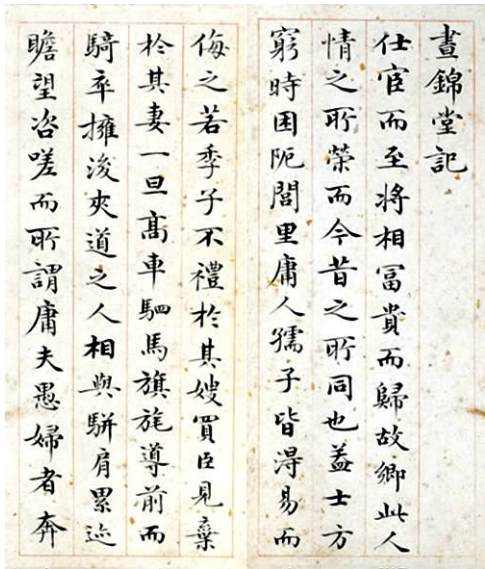 晝錦堂記
仕宦而至將相冨貴而歸故鄉此人
情之所榮而今昔之所同也蓋士方
窮時困阨閭里庸人孺子皆得易而
侮之若季子不禮於其嫂買臣見棄
於其妻一旦高車駟馬旗旄導前而
騎卒擁後夾道之人相與駢肩累迹
瞻望咨嗟而所謂庸夫愚婦者奔